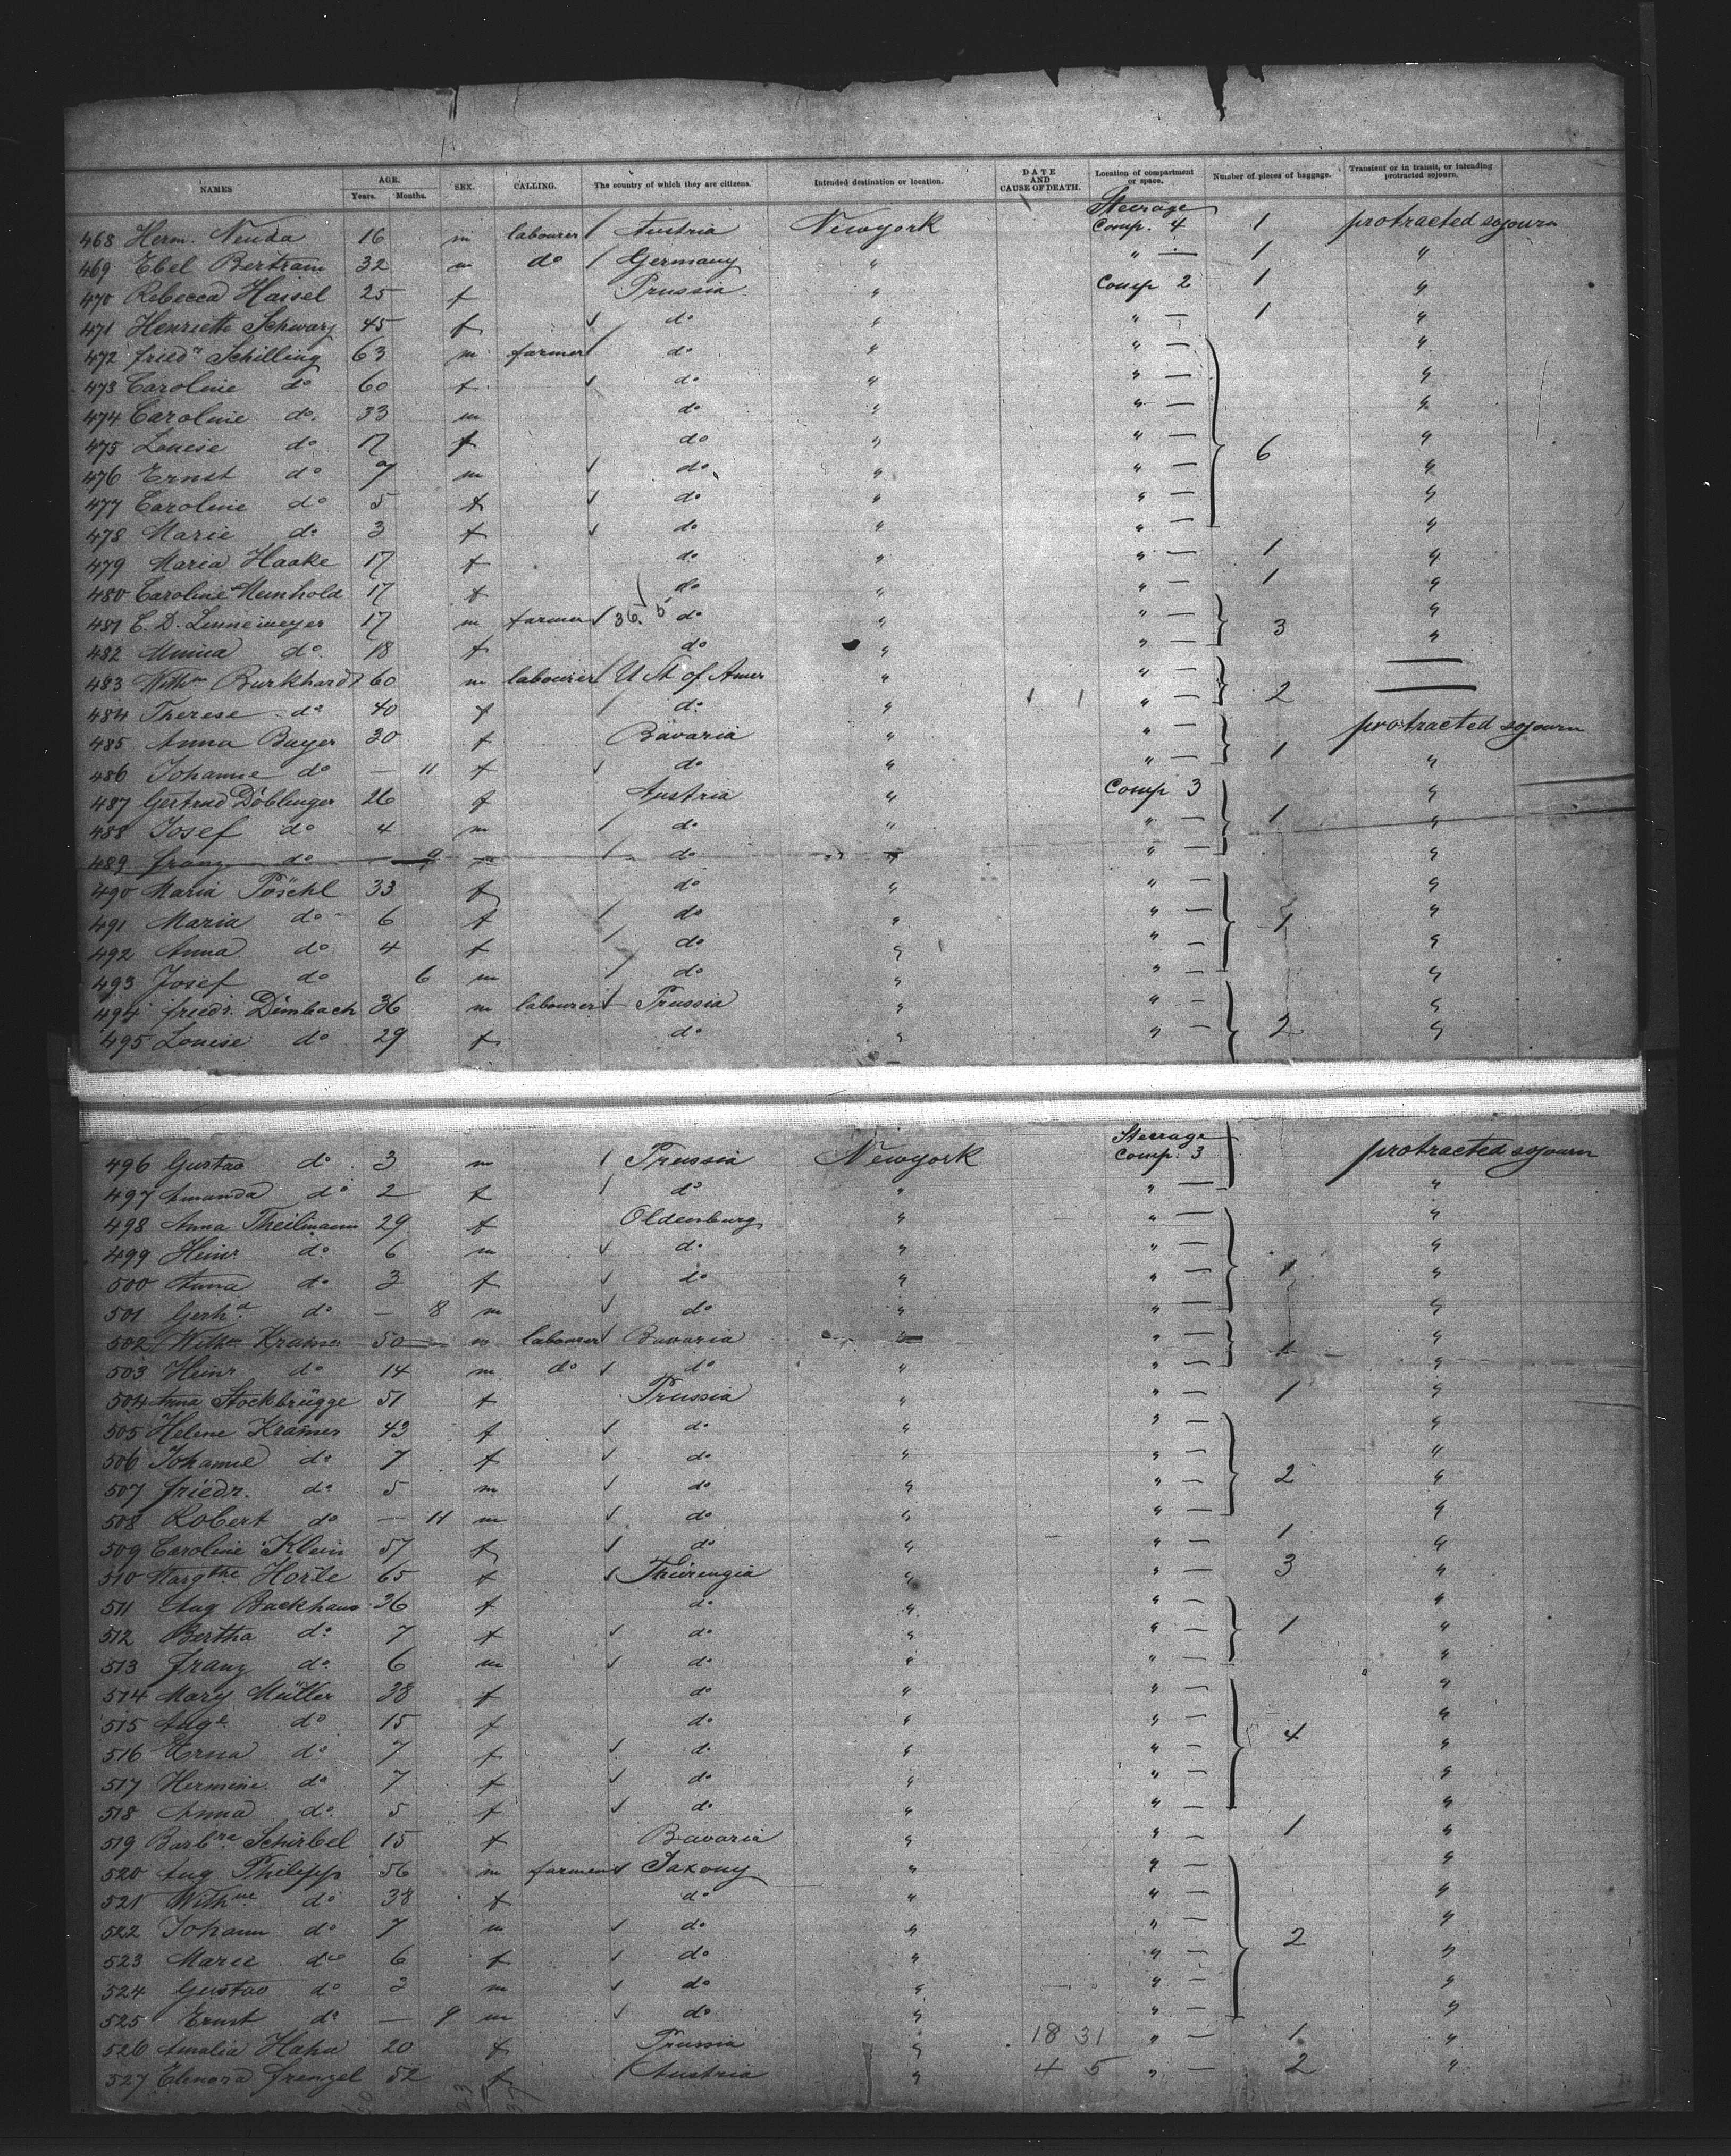 NAMES AGE. Years. Months. SEX. CALLING. The country of which they are citizens. Intended destination or location. DATE AND CAUSE OF DEATH. Location of compartment or space. Number of pieces of baggage. Transient or in transit, or intending protracted sojourn.
Steerage
468 Herm. Neuda 16 m labourer / Austria Newyork Comp. 4 1 protracted sojourn
469 Ebel Bertram 32 m do / Germany " " — 1 "
470 Rebecca Hassel 25 f Prussia " Comp 2 1 "
471 Henriette Schwarz 45 f ✓ do " " — 1 "
472 Friedr Schilling 63 m farmer / do " " — "
473 Caroline do 60 f ✓ do " " — "
474 Caroline do. 33 m do " " — "
475 Louise do 17 f do " " — "
476 Ernst do 7 m ✓ do " " — 6 "
477 Caroline do 5 f ✓ do " " — "
478 Marie do 3 f ✓ do " " — "
479 Maria Haake 17 f do " " — 1 "
480 Caroline Meinhold 17 f do " " — 1 "
481 C. D. Linnemeyer 17 m farmer ✓ 36. do " " — 3 "
482 Minna do 18 f do " " — "
483 Wilhm Burkhardt 60 m labourer / U St of Amer " " — 2 —
484 Therese do 40 f / do " " — —
485 Anna Bayer 30 f Bavaria " " — 1 protracted sojourn
486 Johanne do — 11 f ✓ do " " — "
487 Gertrud Döblinger 26 f Austria " Comp 3 1 "
488 Josef do 4 m / do " " — "
489 Franz do — 9 m / do " " — "
490 Maria Pöschl 33 f do " " — "
491 Maria do 6 f / do " " — 1 "
492 Anna do 4 f / do " " — "
493 Josef do 6 m / do " " — "
494 Friedr. Dimbach 36 m labourer / Prussia " " — 2 "
495 Louise do 29 f do " " — "
Steerage
496 Gustav do 3 m / Prussia Newyork Comp. 3 protracted sojourn
497 Amanda do 2 f / do " " — "
498 Anna Theilmann 29 f Oldenburg " " — "
499 Heinr. do 6 m ✓ do " " — "
500 Anna do 3 f ✓ do " " — 1 "
501 Gerhd. do — 8 m ✓ do " " — "
502 Wilhm Kramer 50 m labourer / Bavaria " " — 1 "
503 Heinr do 14 m do ✓ do " " — "
504 Anna Stockbrügge 51 f Prussia " " — 1 "
505 Helene Kramer 43 f ✓ do " " — "
506 Johanne do 7 f ✓ do " " — "
507 Friedr. do 5 m ✓ do " " — 2 "
508 Robert do — 11 m ✓ do " " — "
509 Caroline Klein 57 f ✓ do " " — 1 "
510 Margthe Horle 65 f ✓ Thüringia " " — 3 "
511 Aug Backhaus 36 f do " " — "
512 Bertha do 7 f ✓ do " " — 1 "
513 Franz do 6 m ✓ do " " — "
514 Mary Müller 38 f do " " — "
515 Auge. do 15 f do " " — "
516 Erna do 7 f ✓ do " " — 4 "
517 Hermine do 7 f ✓ do " " — "
518 Anna do 5 f ✓ do " " — "
519 Barbra Schirbel 15 f Bavaria " " — 1 "
520 Aug Philipp 56 m farmer ✓ Saxony " " — "
521 Wilhne do 38 f do " " — "
522 Johann do 7 m ✓ do " " — 2 "
523 Marie do 6 f ✓ do " " — "
524 Gustav do 3 m ✓ do " " — "
525 Ernst do — 9 m ✓ do " " — "
526 Amalia Hahn 20 f Prussia " 18 31 " — 1 "
527 Elenora Frenzel 52 f / Austria " 4 5 " — 2 "